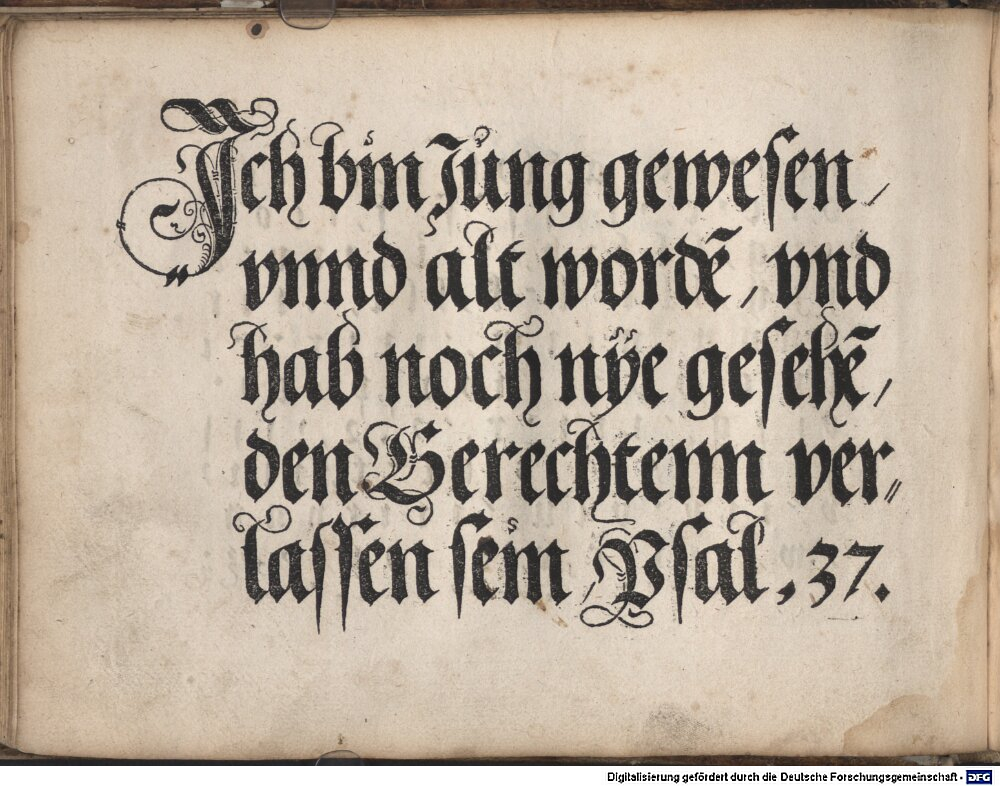 Ich bin Jung gewesen /
vnnd alt wordē / vnd
hab noch nÿe gesehē /
den Gerechtenn ver⸗
lassen sein Psal, 37.
Digitalisierung gefördert durch die Deutsche Forschungsgemeinschaft - DFG